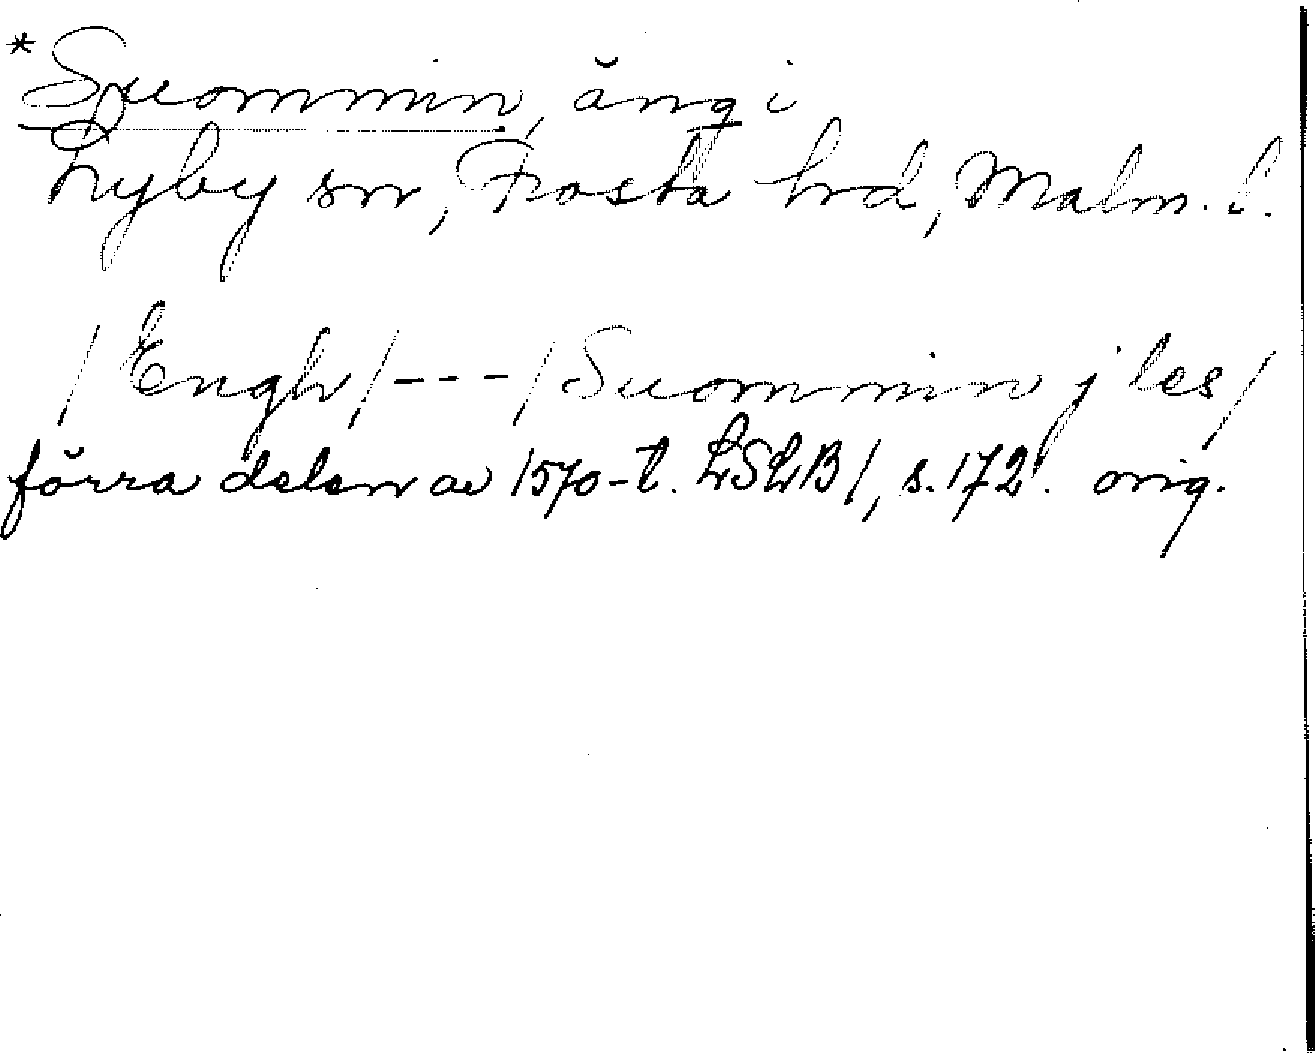 *Suommin, äng i
Lyby sn, Frosta hd, Malm. l.
/Engh/---/Suommin j les/
förra delen av 1570-t. LSLB1, s.172. orig.